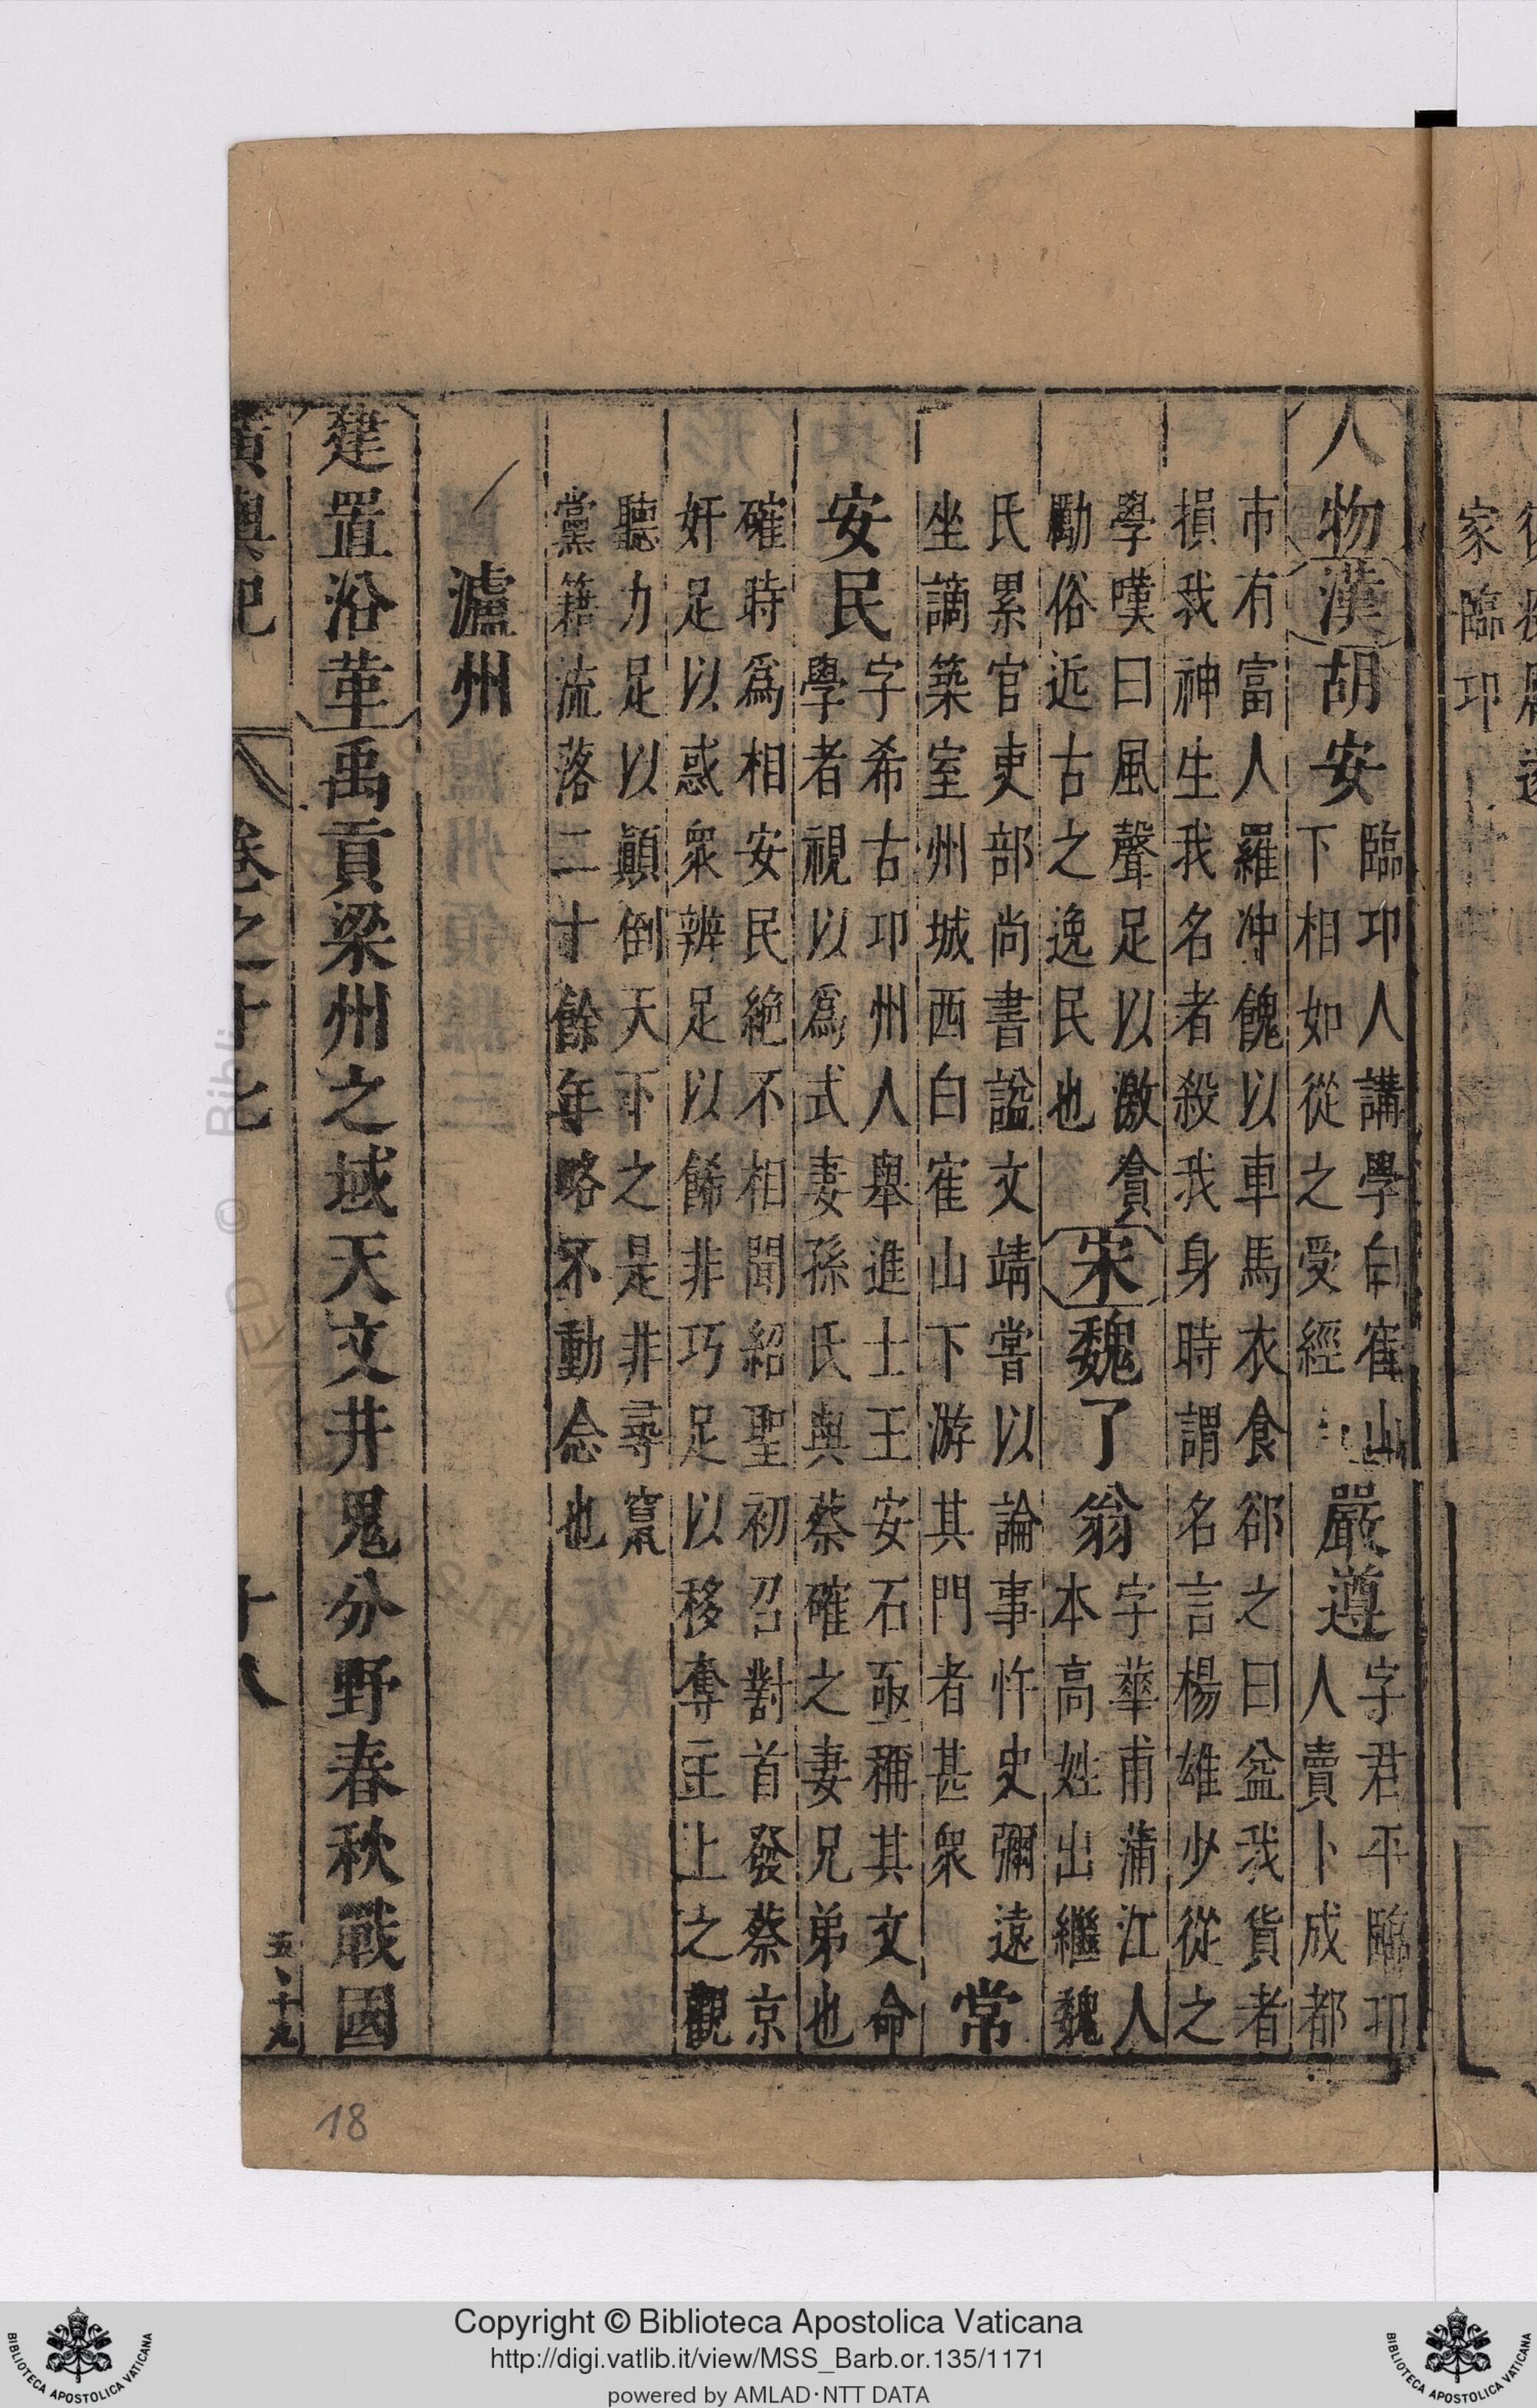 人物漢胡安臨邛人講學白寉山嚴遵字君平臨邛
下相如從之受經人賣卜成都
市有富人羅冲餽以車馬衣食郤之曰益我貨者
損我神生我名者殺我身時謂名言楊雄少從之
學嘆曰風聲足以激貪宋魏了翁字華甫蒲江人
勵俗近古之逸民也本高姓出繼魏
氏累官吏部尚書諡文靖嘗以論事忤史彌遠常
坐謫築室州城西白寉山下游其門者甚衆
安民字希古邛州人舉進士王安石亟稱其文命
學者視以爲式妻孫氏與蔡確之妻兄弟也
確時爲相安民絶不相聞紹聖初召對首發蔡京
奸足以惑衆辨足以餙非巧足以移奪主上之觀
聽力足以顚倒天下之是非尋竄
黨籍流落二十餘年略不動念也
瀘州
建置沿革禹貢梁州之域天文井鬼分野春秋戰國
廣輿記 卷之十七 十八 五十九
家臨邛
18
Copyright © Biblioteca Apostolica Vaticana
http://digi.vatlib.it/view/MSS_Barb.or.135/1171
powered by AMLAD·NTT DATA
BIBLIOTECA APOSTOLICA VATICANA
BIBLIOTECA APOSTOLICA VATICANA